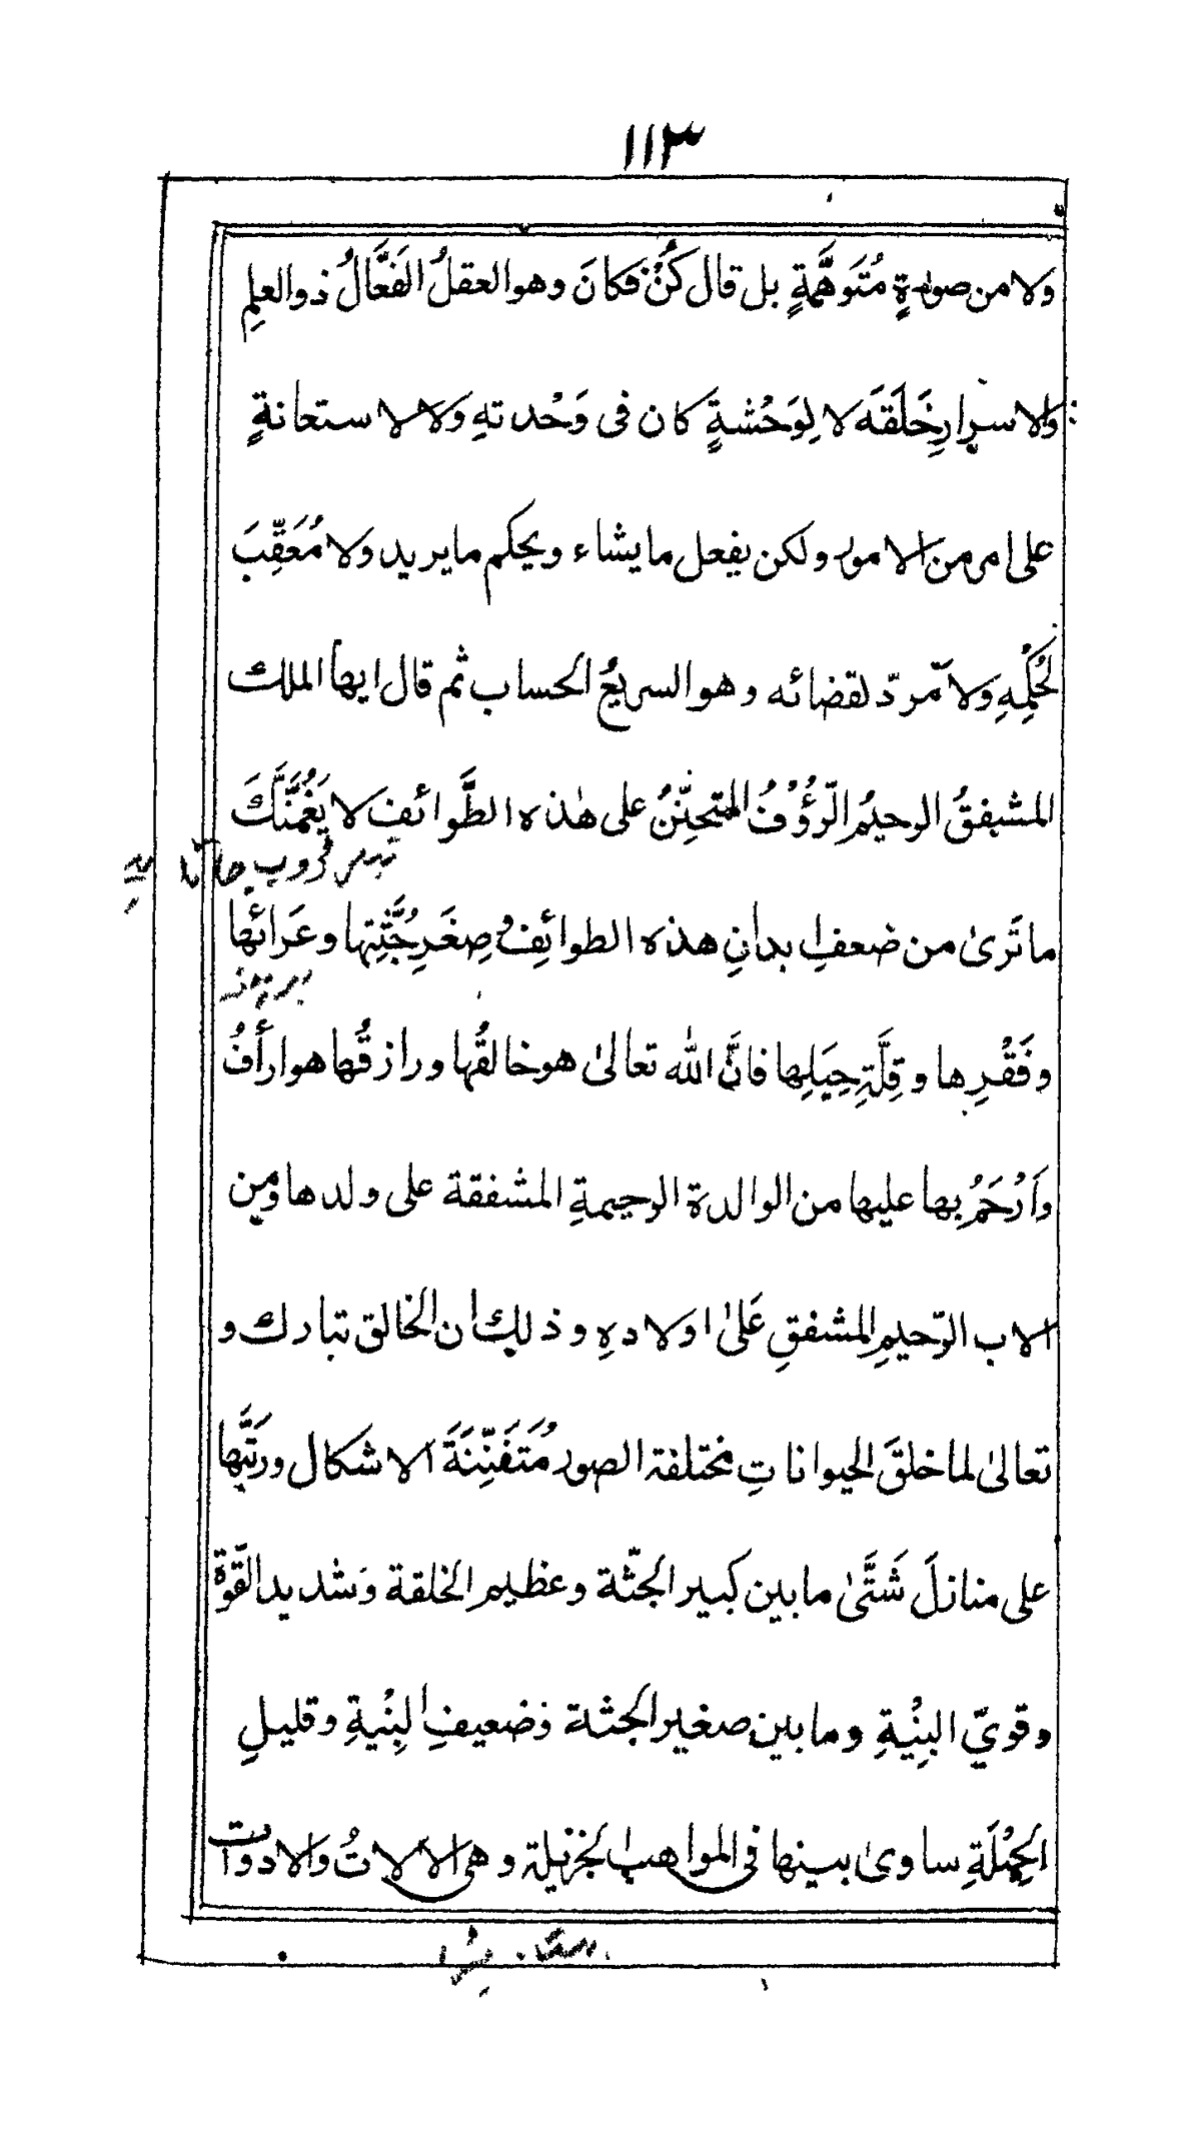 ١١٣
ولا من صورةٍ مُتَوَهَّمةٍ بل قال كُنْ فكانَ وهو العقلُ الفَعَّالُ ذو العلمِ
والاسرارِ خَلَقَه لا لِوَحْشةٍ كان فى وَحْدتهِ ولا لاستعانةٍ
على امر من الامور ولكن يفعل ما يشاء ويحكم ما يريد ولا مُعَقِّبَ
لحُكْمِهِ ولا مردّ لقضائه وهو السريعُ الحساب ثم قال ايها الملك
المشفقُ الرحيمُ الرّؤُوْفُ المتحنِّنُ على هٰذه الطَّوائفِ لا يَغُمَّنَّكَ
ما تَرىٰ من ضعفِ ابدانِ هذه الطوائِفِ وصِغَرِ جُثَّتِها وعَرائِها
وفَقْرِها وقِلَّةِ حِيَلِها فانَّ الله تعالىٰ هو خالقُها ورازقُها هو ارأَفُ
واَرْحَمُ بها عليها من الوالدة الرحيمةِ المشفقة على ولدها ومِن
الاب الرّحيمِ المشفقِ عَلىٰ اولادهِ وذلِك ان الخالق تبارك و
تعالىٰ لما خلقَ الحيواناتِ مختلفة الصور مُتَفَنِّنَةَ الاشكال ورَتَّبها
على منازلَ شَتَّىٰ ما بين كبير الجثّة وعظيمِ الخلقة وَشديد القّوة
وقويّ البنْيةِ وما بين صغير الجثة وضعيفِ البِنْيةِ وقليلِ
الحِيْلَةِ ساوىٰ بينها فى المواهب الجزيلة وهى الآلاتُ والادوات